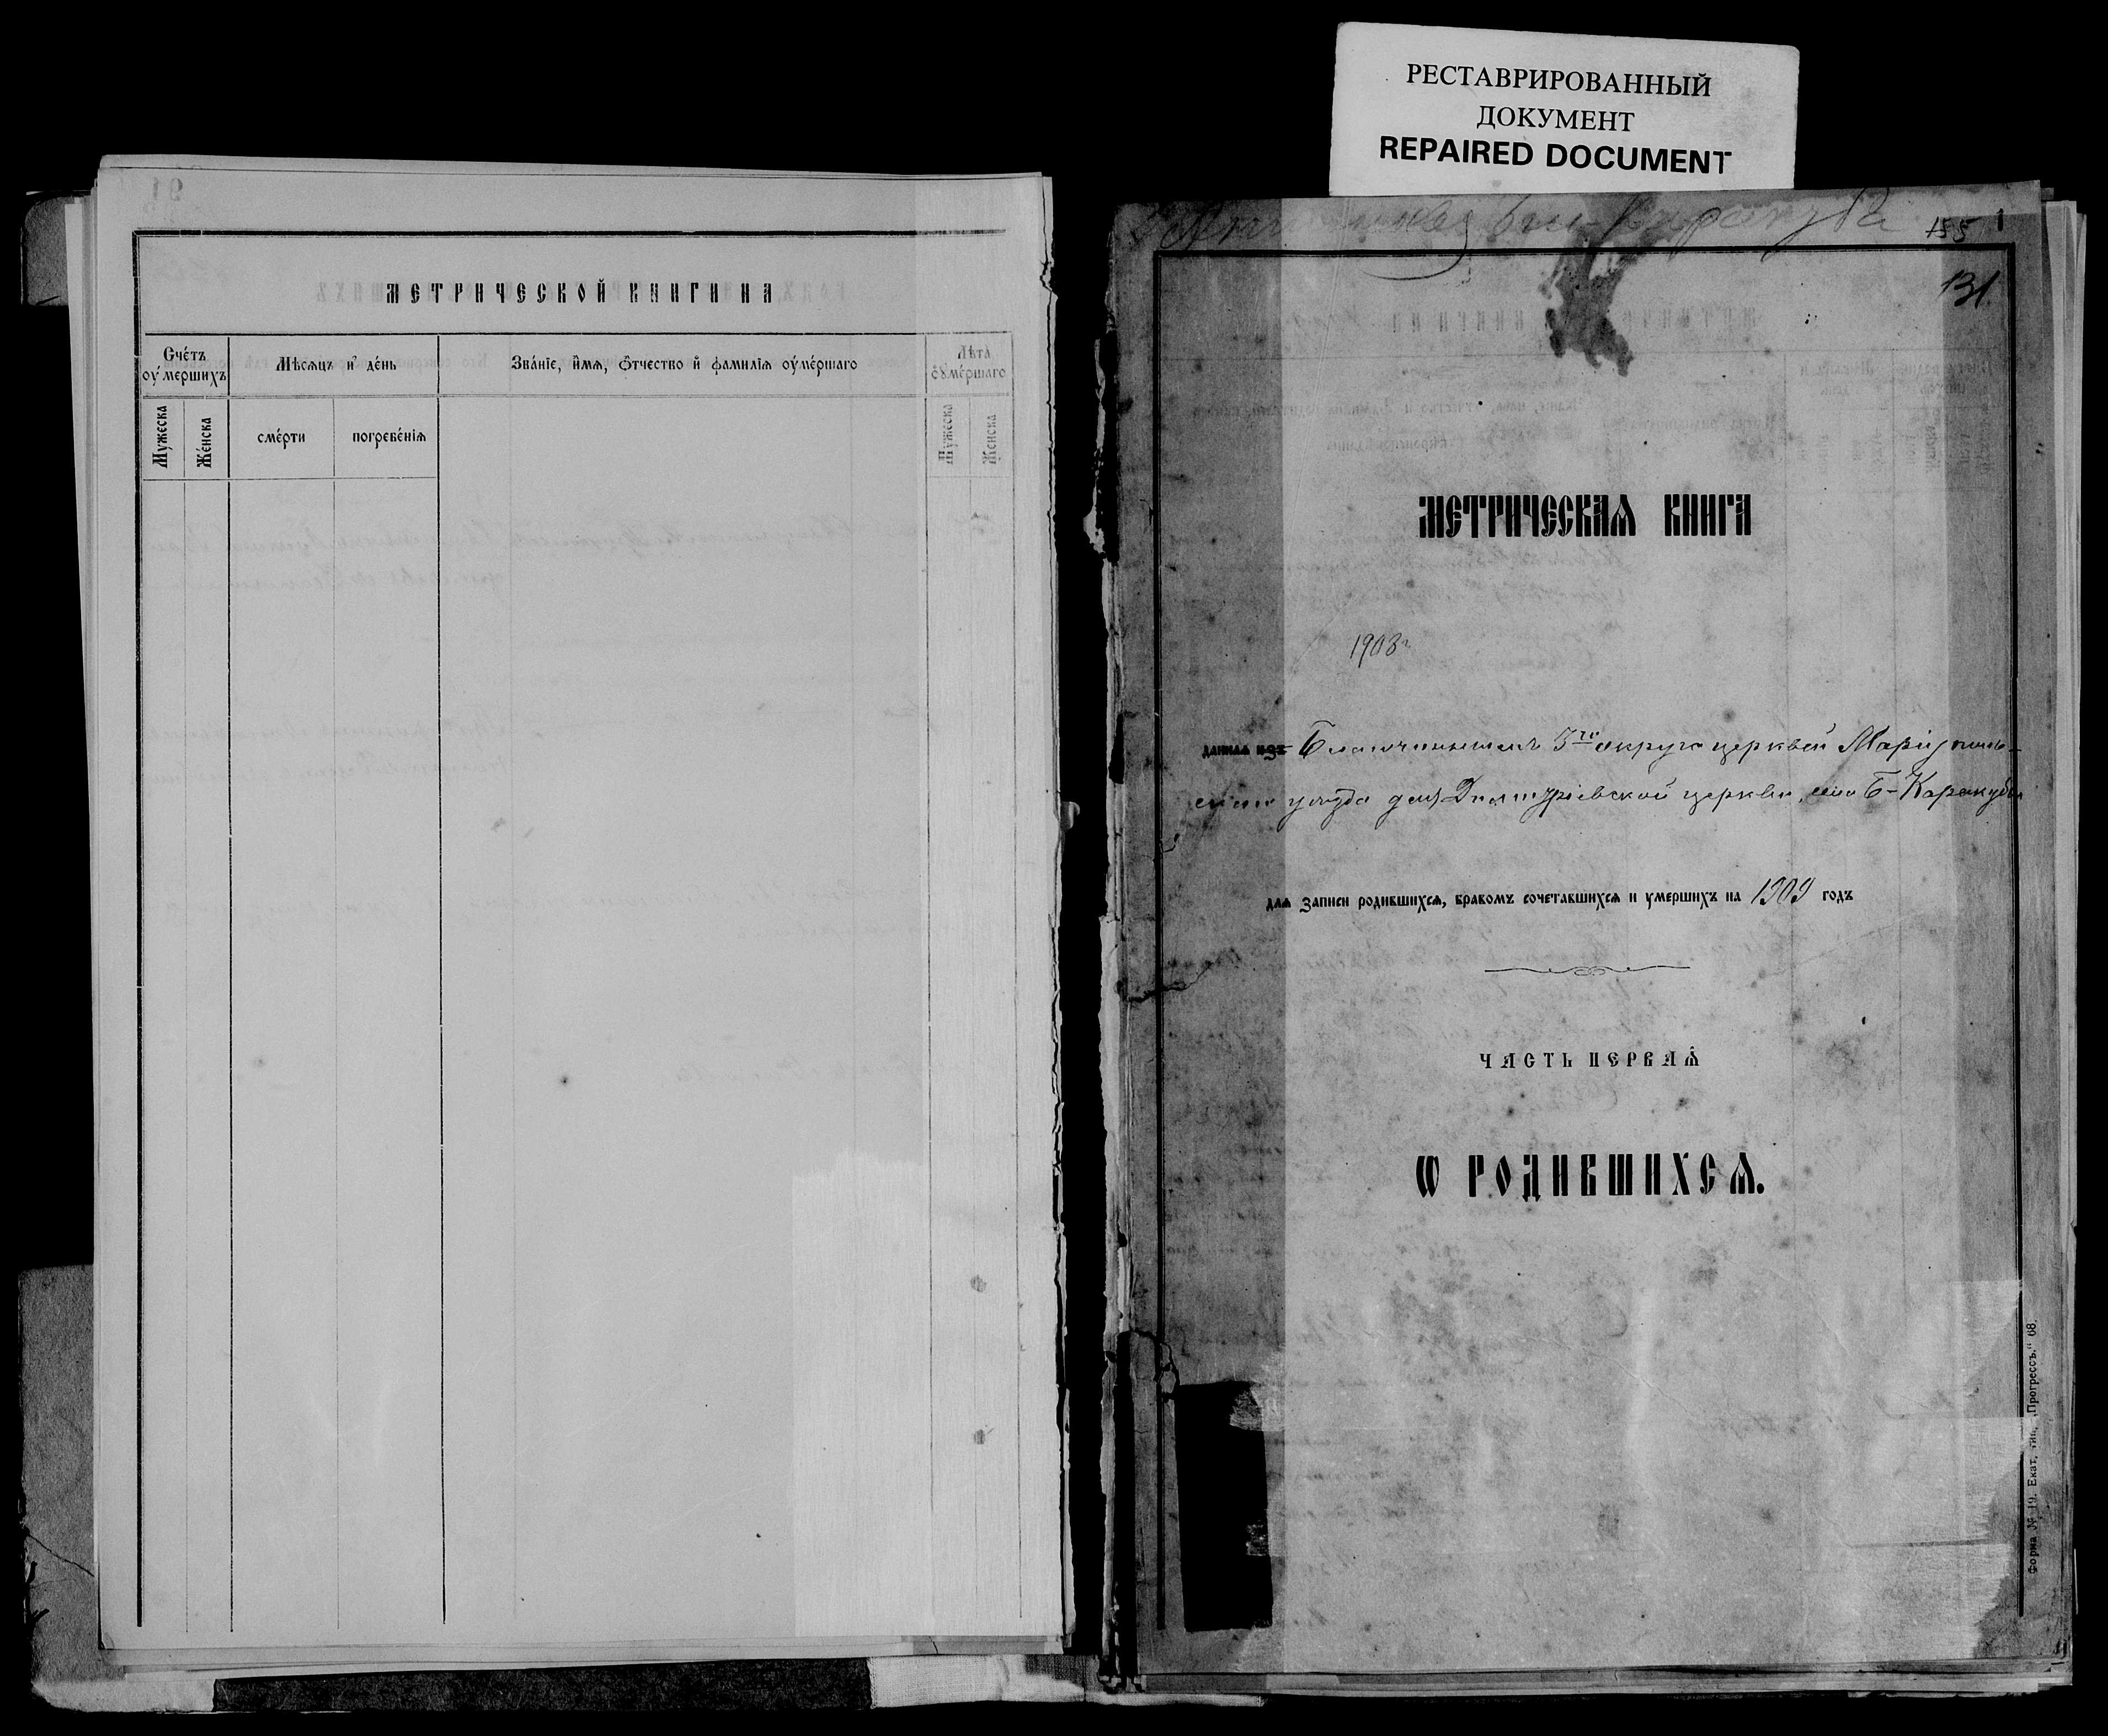 РЕСТАВРИРОВАННЫЙ
ДОКУМЕНТ
REPAIRED DOCUMENT
МЕТРИЧЕСКОЙ КНИГИ НА
Сче́тъ оу҆мершихъ
Мѣсѧцъ и҆ де́нь
Зва́нїе, и҆́мѧ, ѻ҆́тчество и҆ фамилїѧ оу҆ме́ршаго
Лѣта̀ оу҆ме́ршаго
Мужеска
Же́нска
сме́рти
погребе́нїѧ
Мужеска
Женска
155 1
131
МЕТРИЧЕСКАѦ КНИГА
1903 г
даннаѧ изъ Благочиннымъ 3го округа церквей Маріуполь-
скаго уѣзда для Димитріевской церкви, села Б-Каракубы
длѧ записи родившихсѧ, бракомъ сочетавшихсѧ и умершихъ на 1909 годъ
ЧАСТЬ ПЕРВАѦ
Ѡ РОДИВШИХСѦ.
Форма № 19. Екат. тип. „Прогрессъ.“ 68.